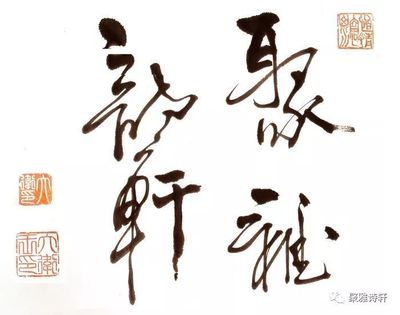 聚雅
詩軒
聚雅诗轩